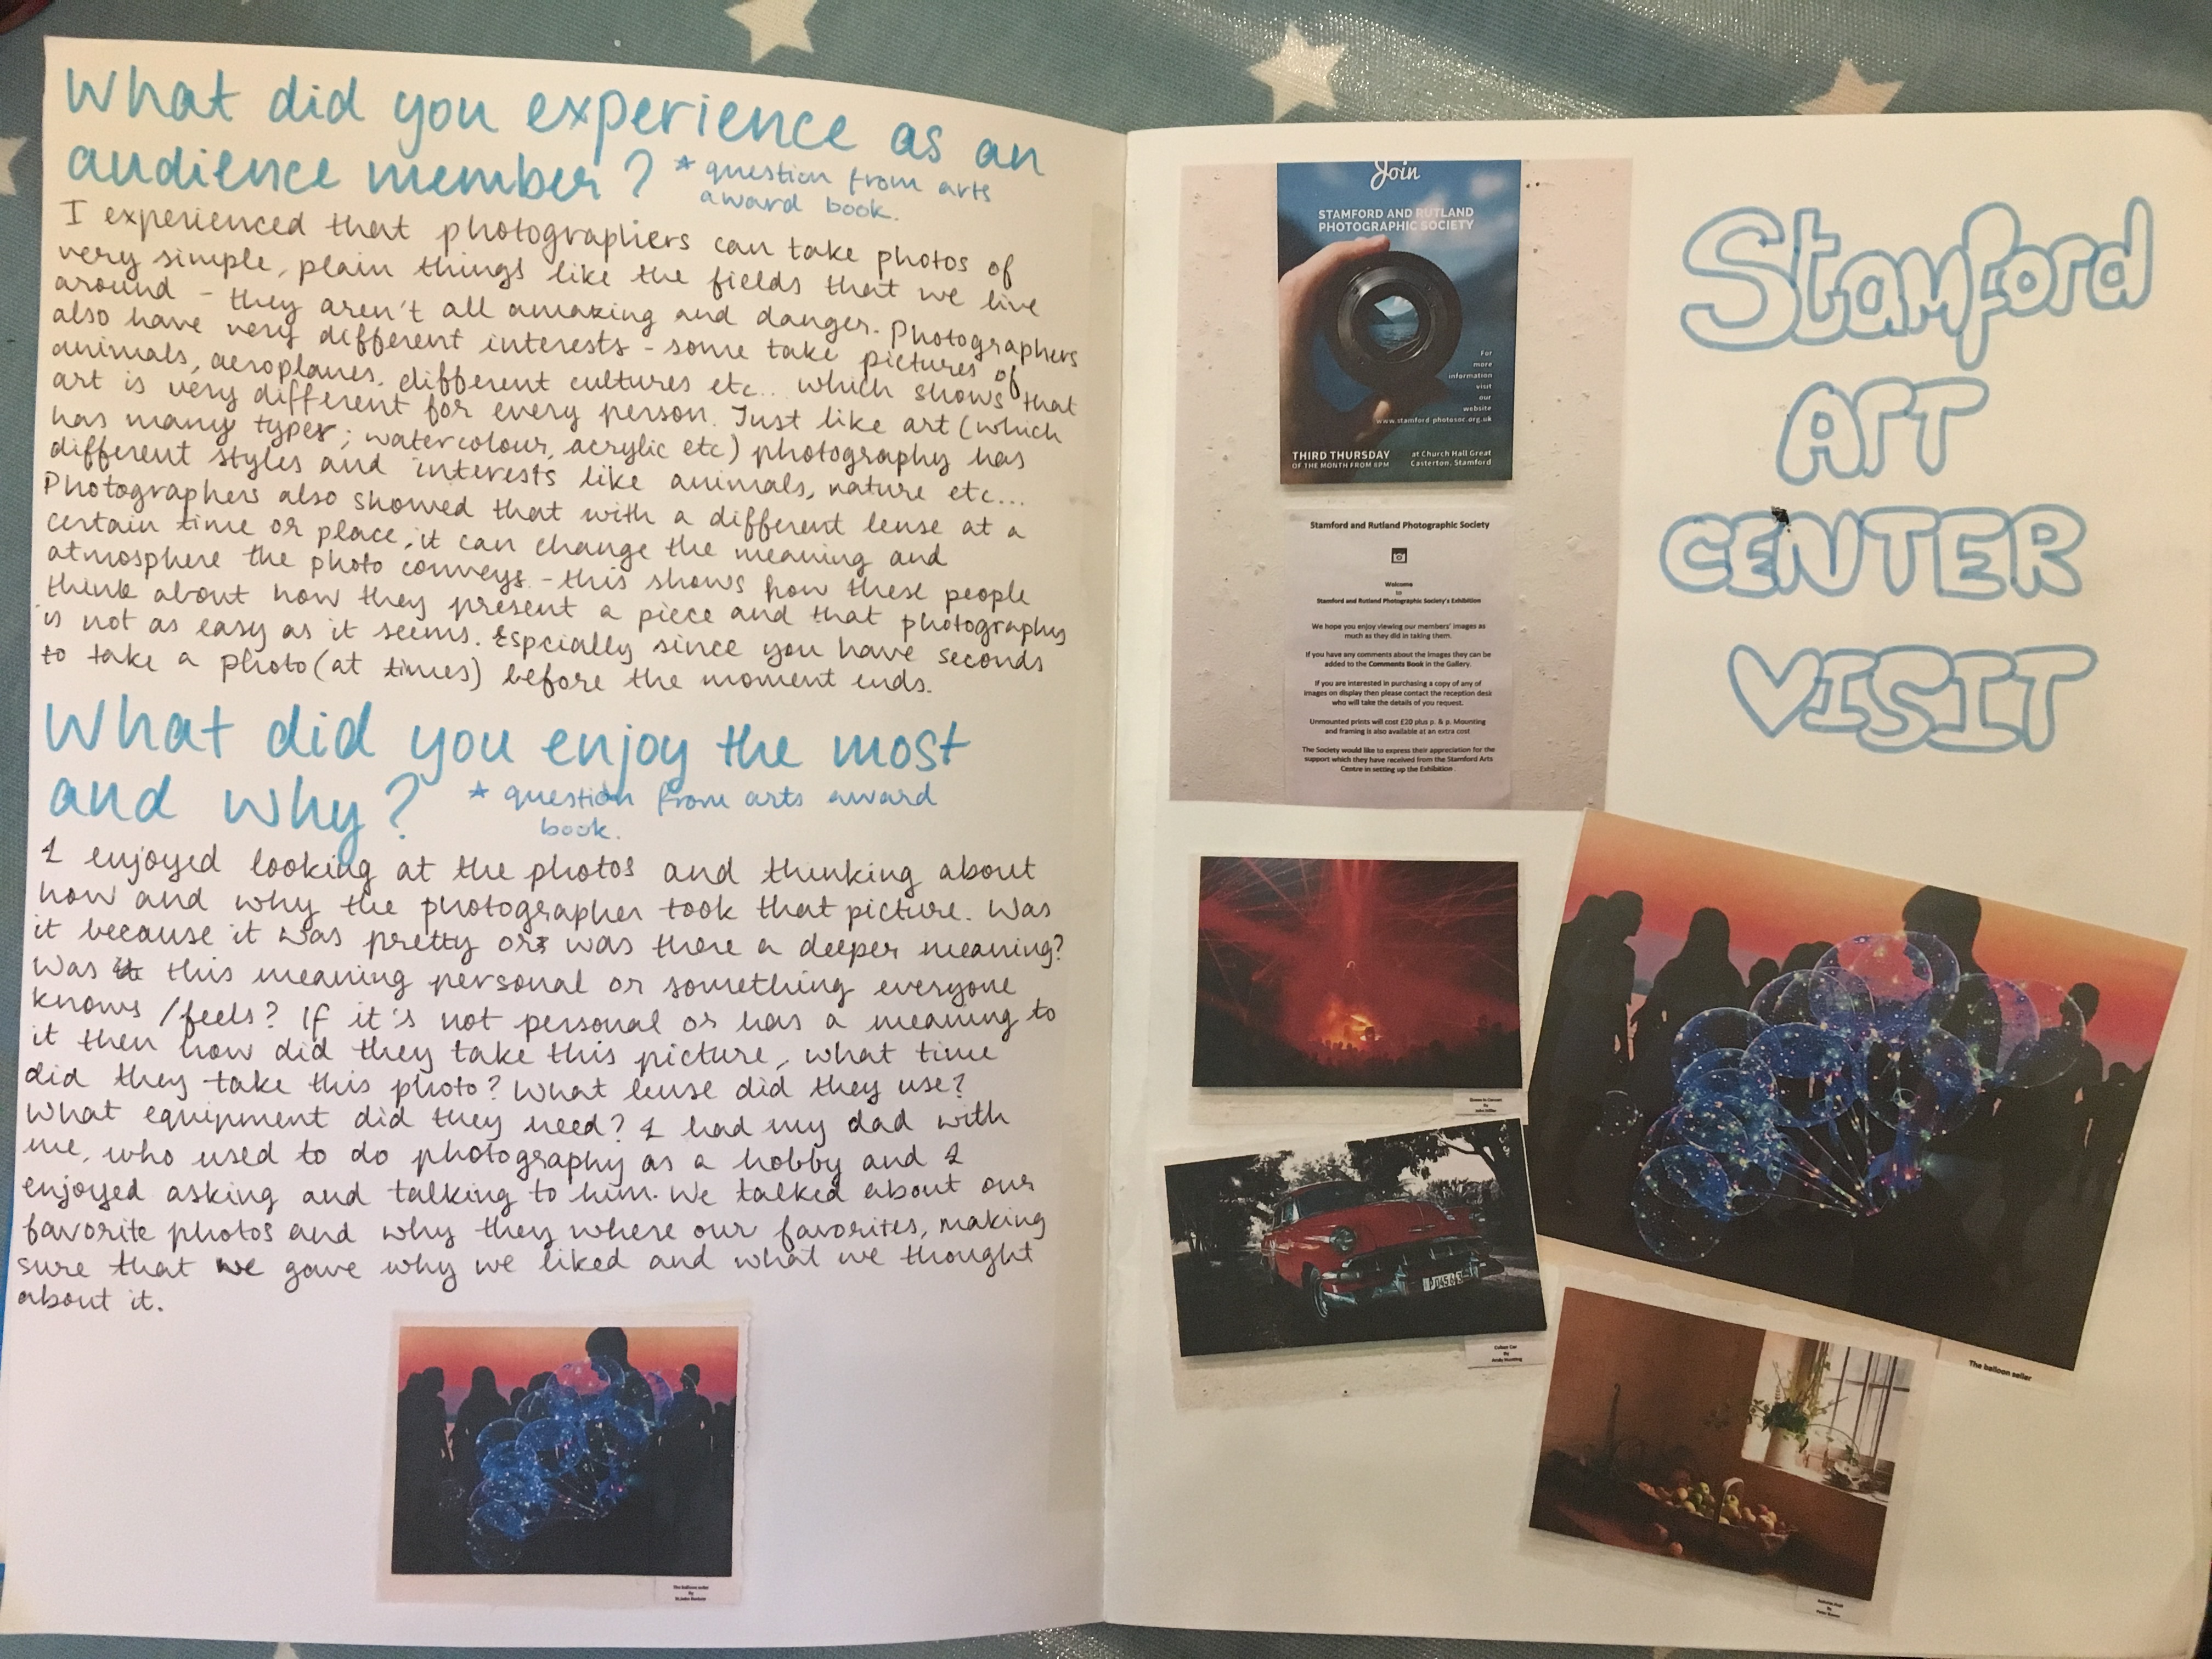 What did you experience as an
audience member? * question from arts
award book.
I experienced that photographers can take photos of
very simple, plain things like the fields that we live
around - they aren't all amazing and danger. Photographers
also have very different interests - some take pictures of
animals, aeroplanes, different cultures etc... which shows that
art is very different for every person. Just like art (which
has many types; watercolour, acrylic etc) photography has
different styles and interests like animals, nature etc...
Photographers also showed that with a different lense at a
certain time or place, it can change the meaning and
atmosphere the photo conveys. - this shows how these people
think about how they present a piece and that photography
is not as easy as it seems. Espcially since you have seconds
to take a photo (at times) before the moment ends.
What did you enjoy the most
and why? * question from arts award
book.
I enjoyed looking at the photos and thinking about
how and why the photographer took that picture. Was
it because it was pretty or was there a deeper meaning?
Was this meaning personal or something everyone
knows / feels? If it's not personal or has a meaning to
it then how did they take this picture, what time
did they take this photo? What lense did they use?
What equipment did they need? I had my dad with
me, who used to do photography as a hobby and I
enjoyed asking and talking to him. We talked about our
favorite photos and why they where our favorites, making
sure that we gave why we liked and what we thought
about it.
The balloon seller
By
Join
STAMFORD AND RUTLAND
PHOTOGRAPHIC SOCIETY
For
more
information
visit
our
website
www.stamford-photosoc.org.uk
THIRD THURSDAY
OF THE MONTH FROM 8PM
at Church Hall Great
Casterton, Stamford
Stamford and Rutland Photographic Society
Welcome
to
Stamford and Rutland Photographic Society's Exhibition
We hope you enjoy viewing our members' images as
much as they did in taking them.
If you have any comments about the images they can be
added to the Comments Book in the Gallery.
If you are interested in purchasing a copy of any of
images on display then please contact the reception desk
who will take the details of you request.
Unmounted prints will cost £20 plus p. & p. Mounting
and framing is also available at an extra cost
The Society would like to express their appreciation for the
support which they have received from the Stamford Arts
Centre in setting up the Exhibition.
Stamford
ART
CENTER
VISIT
By
Cuban Car
By
Andy Hunting
The balloon seller
By